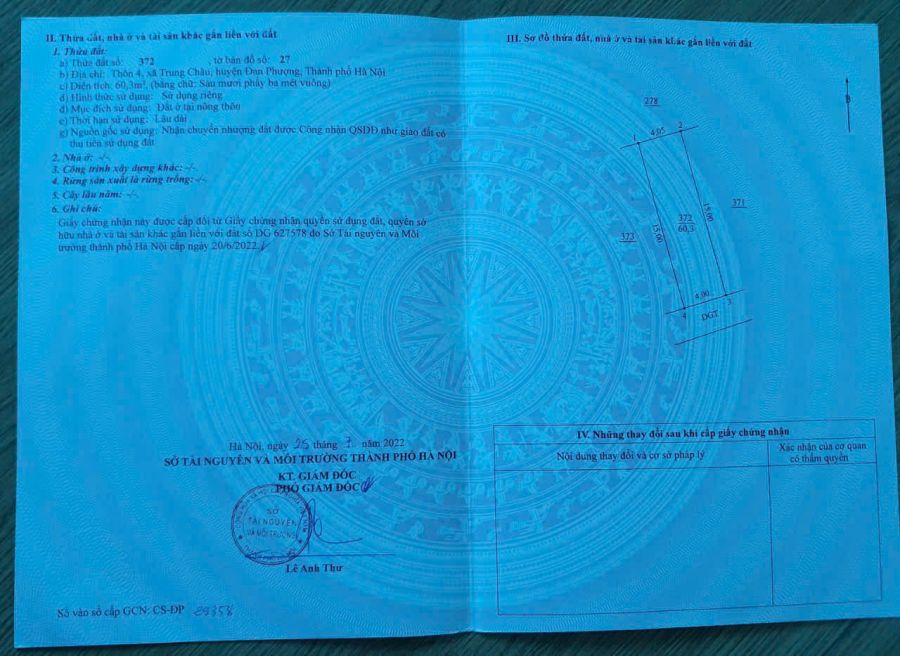 II. Thửa đất, nhà ở và tài sản khác gắn liền với đất
1. Thửa đất:
a) Thửa đất số: 372 , tờ bản đồ số: 27
b) Địa chỉ: Thôn 4, xã Trung Châu, huyện Đan Phượng, Thành phố Hà Nội
c) Diện tích: 60,3m², (bằng chữ: Sáu mươi phẩy ba mét vuông)
d) Hình thức sử dụng: Sử dụng riêng
đ) Mục đích sử dụng: Đất ở tại nông thôn
e) Thời hạn sử dụng: Lâu dài
g) Nguồn gốc sử dụng: Nhận chuyển nhượng đất được Công nhận QSDĐ như giao đất có
thu tiền sử dụng đất
2. Nhà ở: -/-
3. Công trình xây dựng khác: -/-
4. Rừng sản xuất là rừng trồng: -/-
5. Cây lâu năm: -/-
6. Ghi chú:
Giấy chứng nhận này được cấp đổi từ Giấy chứng nhận quyền sử dụng đất, quyền sở
hữu nhà ở và tài sản khác gắn liền với đất số DG 627578 do Sở Tài nguyên và Môi
trường thành phố Hà Nội cấp ngày 20/6/2022
Hà Nội, ngày 25 tháng 7 năm 2022
SỞ TÀI NGUYÊN VÀ MÔI TRƯỜNG THÀNH PHỐ HÀ NỘI
KT. GIÁM ĐỐC
PHÓ GIÁM ĐỐC
SỞ
TÀI NGUYÊN
VÀ MÔI TRƯỜNG
Lê Anh Thư
Số vào sổ cấp GCN: CS-ĐP
III. Sơ đồ thửa đất, nhà ở và tài sản khác gắn liền với đất
B
278
1
4,05
2
371
372
60,3
373
15,00
15,00
4,00
4
3
DGT
IV. Những thay đổi sau khi cấp giấy chứng nhận
Nội dung thay đổi và cơ sở pháp lý
Xác nhận của cơ quan
có thẩm quyền